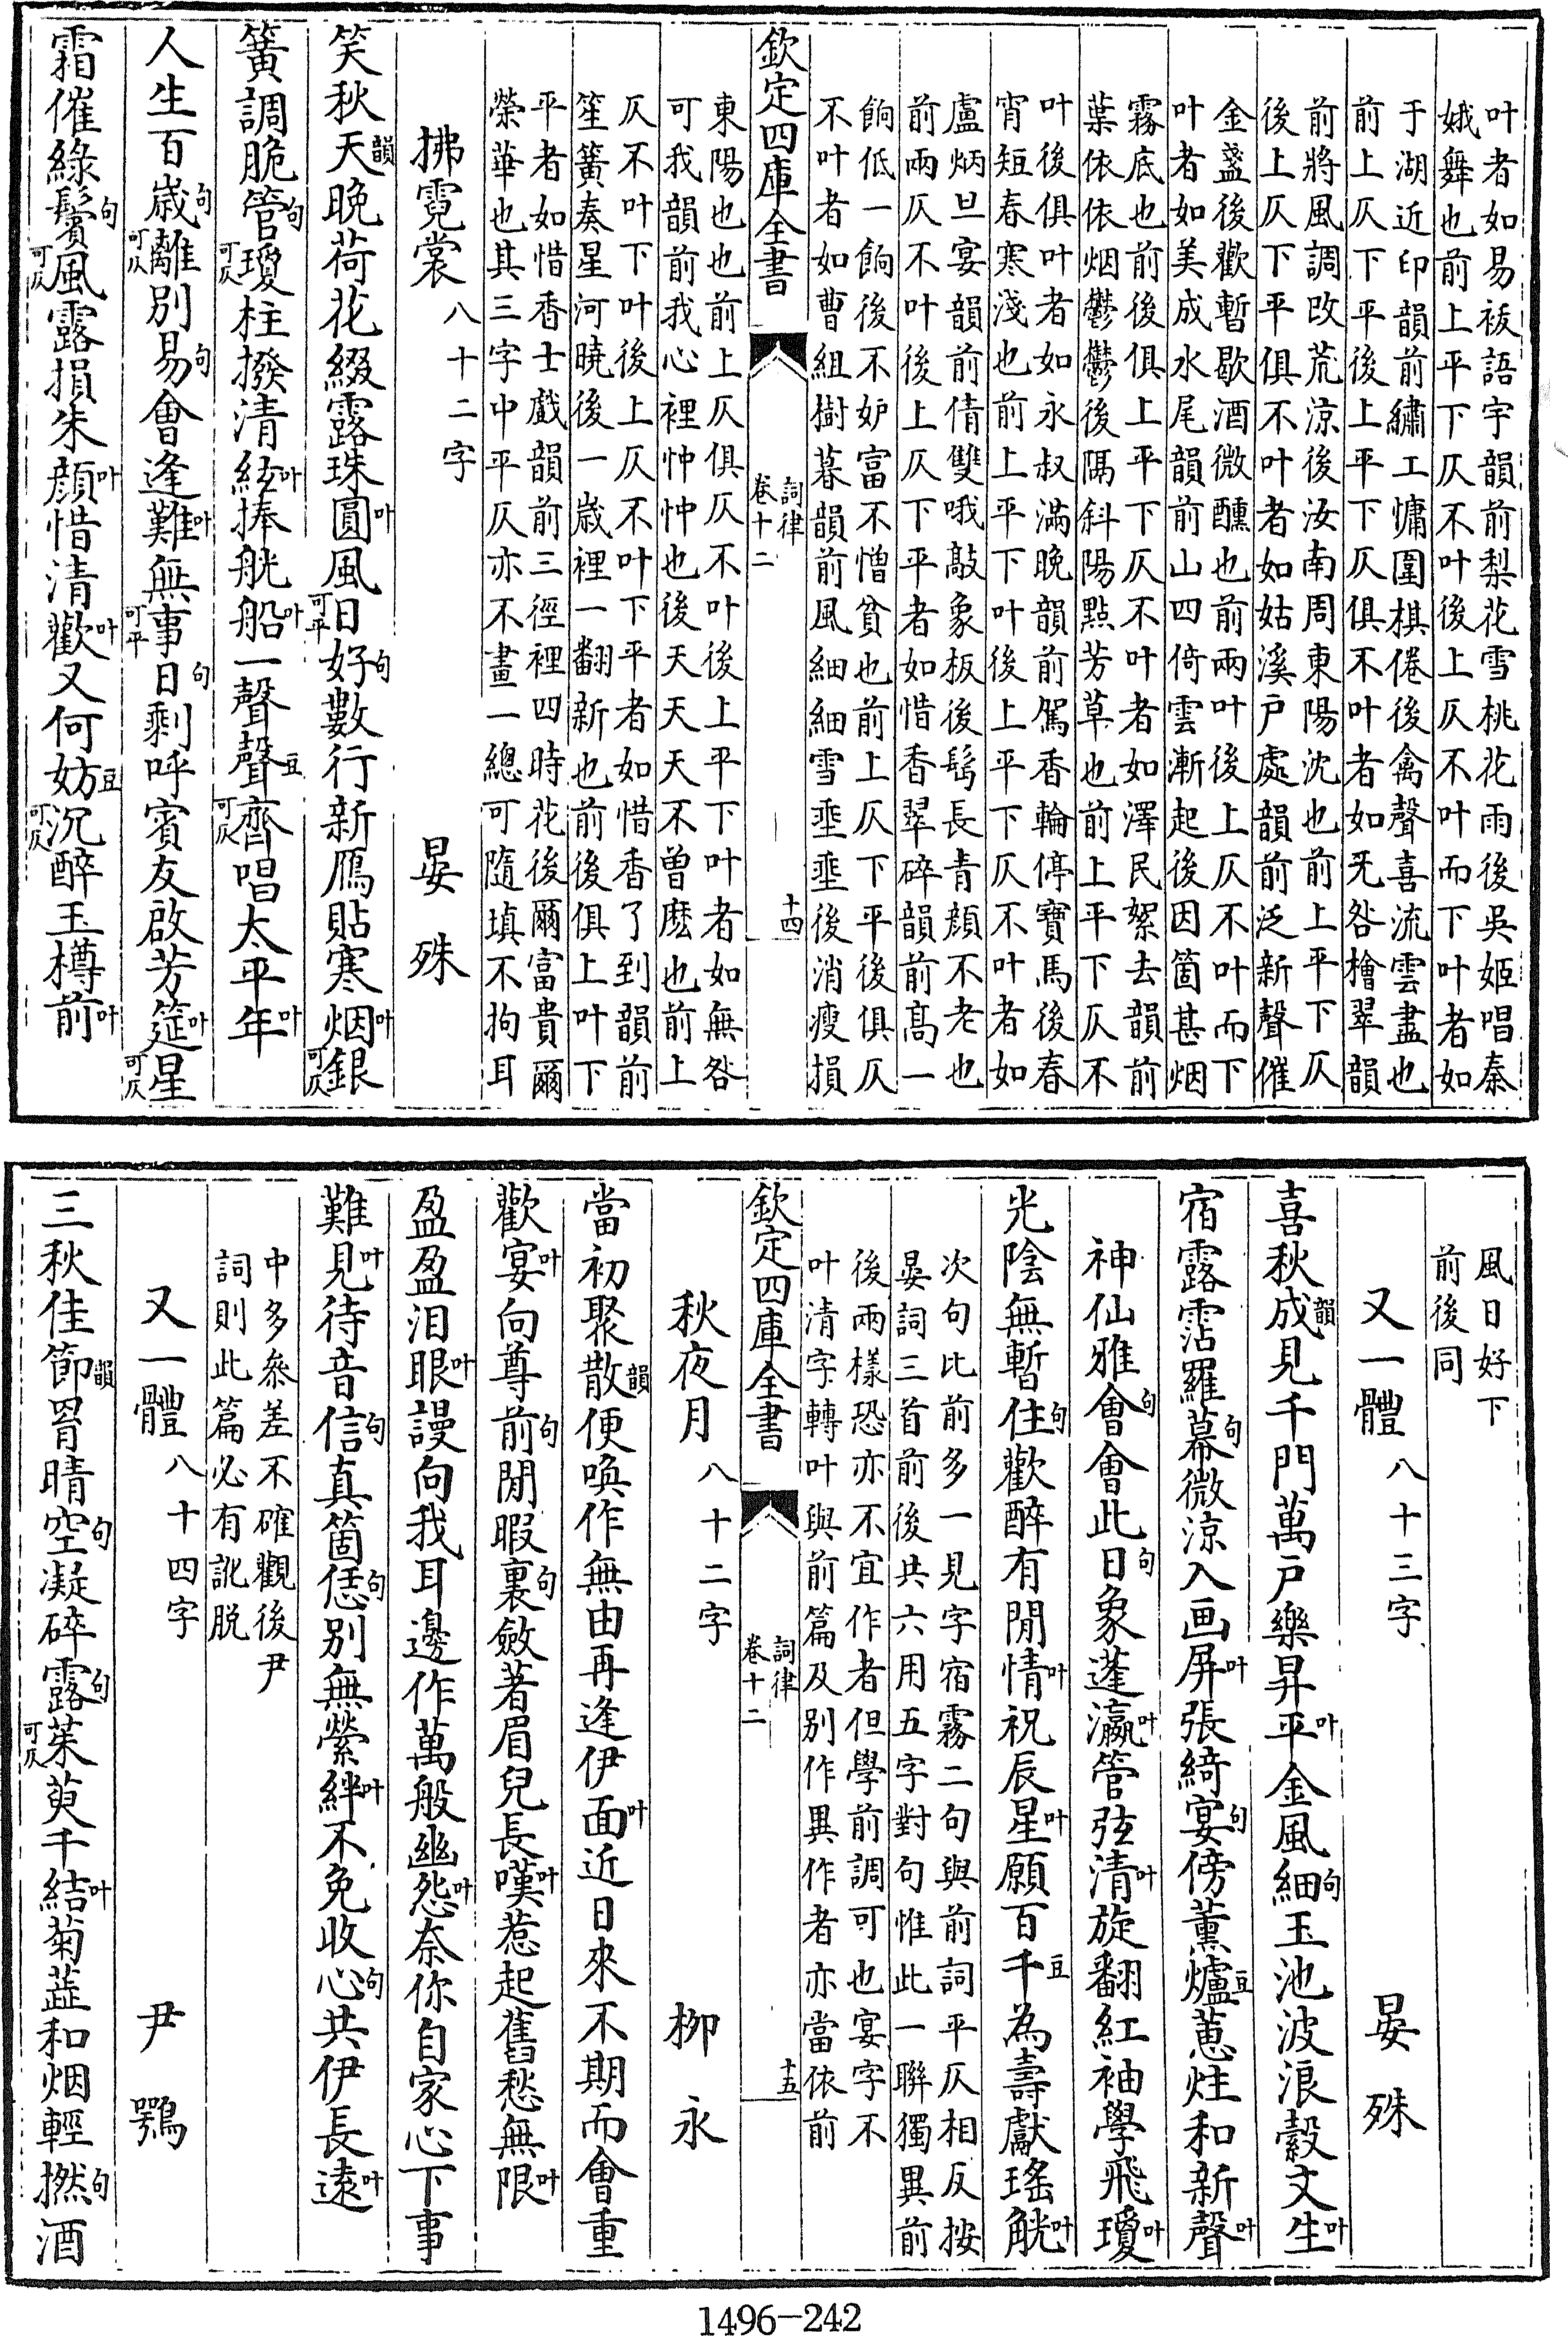 叶者如易祓語宇韻前梨花雪桃花雨後吳姬唱秦
娥舞也前上平下仄不叶後上仄不叶而下叶者如
于湖近印韻前繡工慵圍棋倦後禽聲喜流雲盡也
前上仄下平後上平下仄俱不叶者如旡咎檜翠韻
前將風調改荒涼後汝南周東陽沈也前上平下仄
後上仄下平俱不叶者如姑溪戶處韻前泛新聲催
金盞後歡暫歇酒微醺也前兩叶後上仄不叶而下
叶者如美成水尾韻前山四倚雲漸起後因箇甚烟
霧底也前後俱上平下仄不叶者如澤民絮去韻前
葉依依烟鬱鬱後隅斜陽點芳草也前上平下仄不
叶後俱叶者如永叔滿晚韻前駕香輪停寶馬後春
宵短春寒淺也前上平下叶後上平下仄不叶者如
盧炳旦宴韻前倩雙哦敲象板後髩長青顔不老也
前兩仄不叶後上仄下平者如惜香翠碎韻前高一
餉低一餉後不妒富不憎貧也前上仄下平後俱仄
不叶者如曹組樹暮韻前風細細雪垂垂後消瘦損
欽定四庫全書
詞律
卷十二
十四
東陽也也前上仄俱仄不叶後上平下叶者如無咎
可我韻前我心裡忡忡也後天天天不曾麽也前上
仄不叶下叶後上仄不叶下平者如惜香了到韻前
笙簧奏星河曉後一嵗裡一翻新也前後俱上叶下
平者如惜香士戲韻前三徑裡四時花後爾富貴爾
榮華也其三字中平仄亦不畫一總可隨填不拘耳
拂霓裳 八十二字 晏殊
笑秋天韻晚荷花綴露珠圓叶風日可平好句數行新鴈貼寒烟叶銀可仄
簧調脆管句瓊可仄柱撥清絃叶捧觥船叶一聲聲豆齊可仄唱太平年叶
人生百嵗句離可仄別易句會逢難叶無事可平日句剩呼賓友啟芳筵叶星可仄
霜催綠鬢句風可仄露損朱顔叶惜清歡叶又何妨豆沉可仄醉玉樽前叶
風日好下
前後同
又一體 八十三字 晏殊
喜秋成韻見千門萬戶樂昇平叶金風細句玉池波浪縠文生叶
宿露霑羅幕句微涼入画屏叶張綺宴句傍薰爐豆蕙炷和新聲叶
神仙雅會句會此日句象蓬瀛叶管弦清叶旋翻紅袖學飛瓊叶
光陰無暫住句歡醉有閒情叶祝辰星叶願百千豆為壽獻瑤觥叶
次句比前多一見字宿霧二句與前詞平仄相反按
晏詞三首前後共六用五字對句惟此一聯獨異前
後兩様恐亦不宜作者但學前調可也宴字不
叶清字轉叶與前篇及別作異作者亦當依前
欽定四庫全書
詞律
卷十二
十五
秋夜月 八十二字 柳永
當初聚散韻便喚作無由再逢伊面叶近日來不期而會重
歡宴叶向尊前句閒暇裏句斂著眉兒長嘆叶惹起舊愁無限叶
盈盈泪眼叶謾向我耳邊作萬般幽怨叶奈你自家心下事
難見叶待音信句真箇恁句別無縈絆叶不免收心句共伊長遠叶
中多叅差不確觀後尹
詞則此篇必有訛脱
又一體 八十四字 尹鶚
三秋佳節韻罥晴空句凝碎露句茱可仄萸千結叶菊蕋和烟輕撚句酒
1496-242